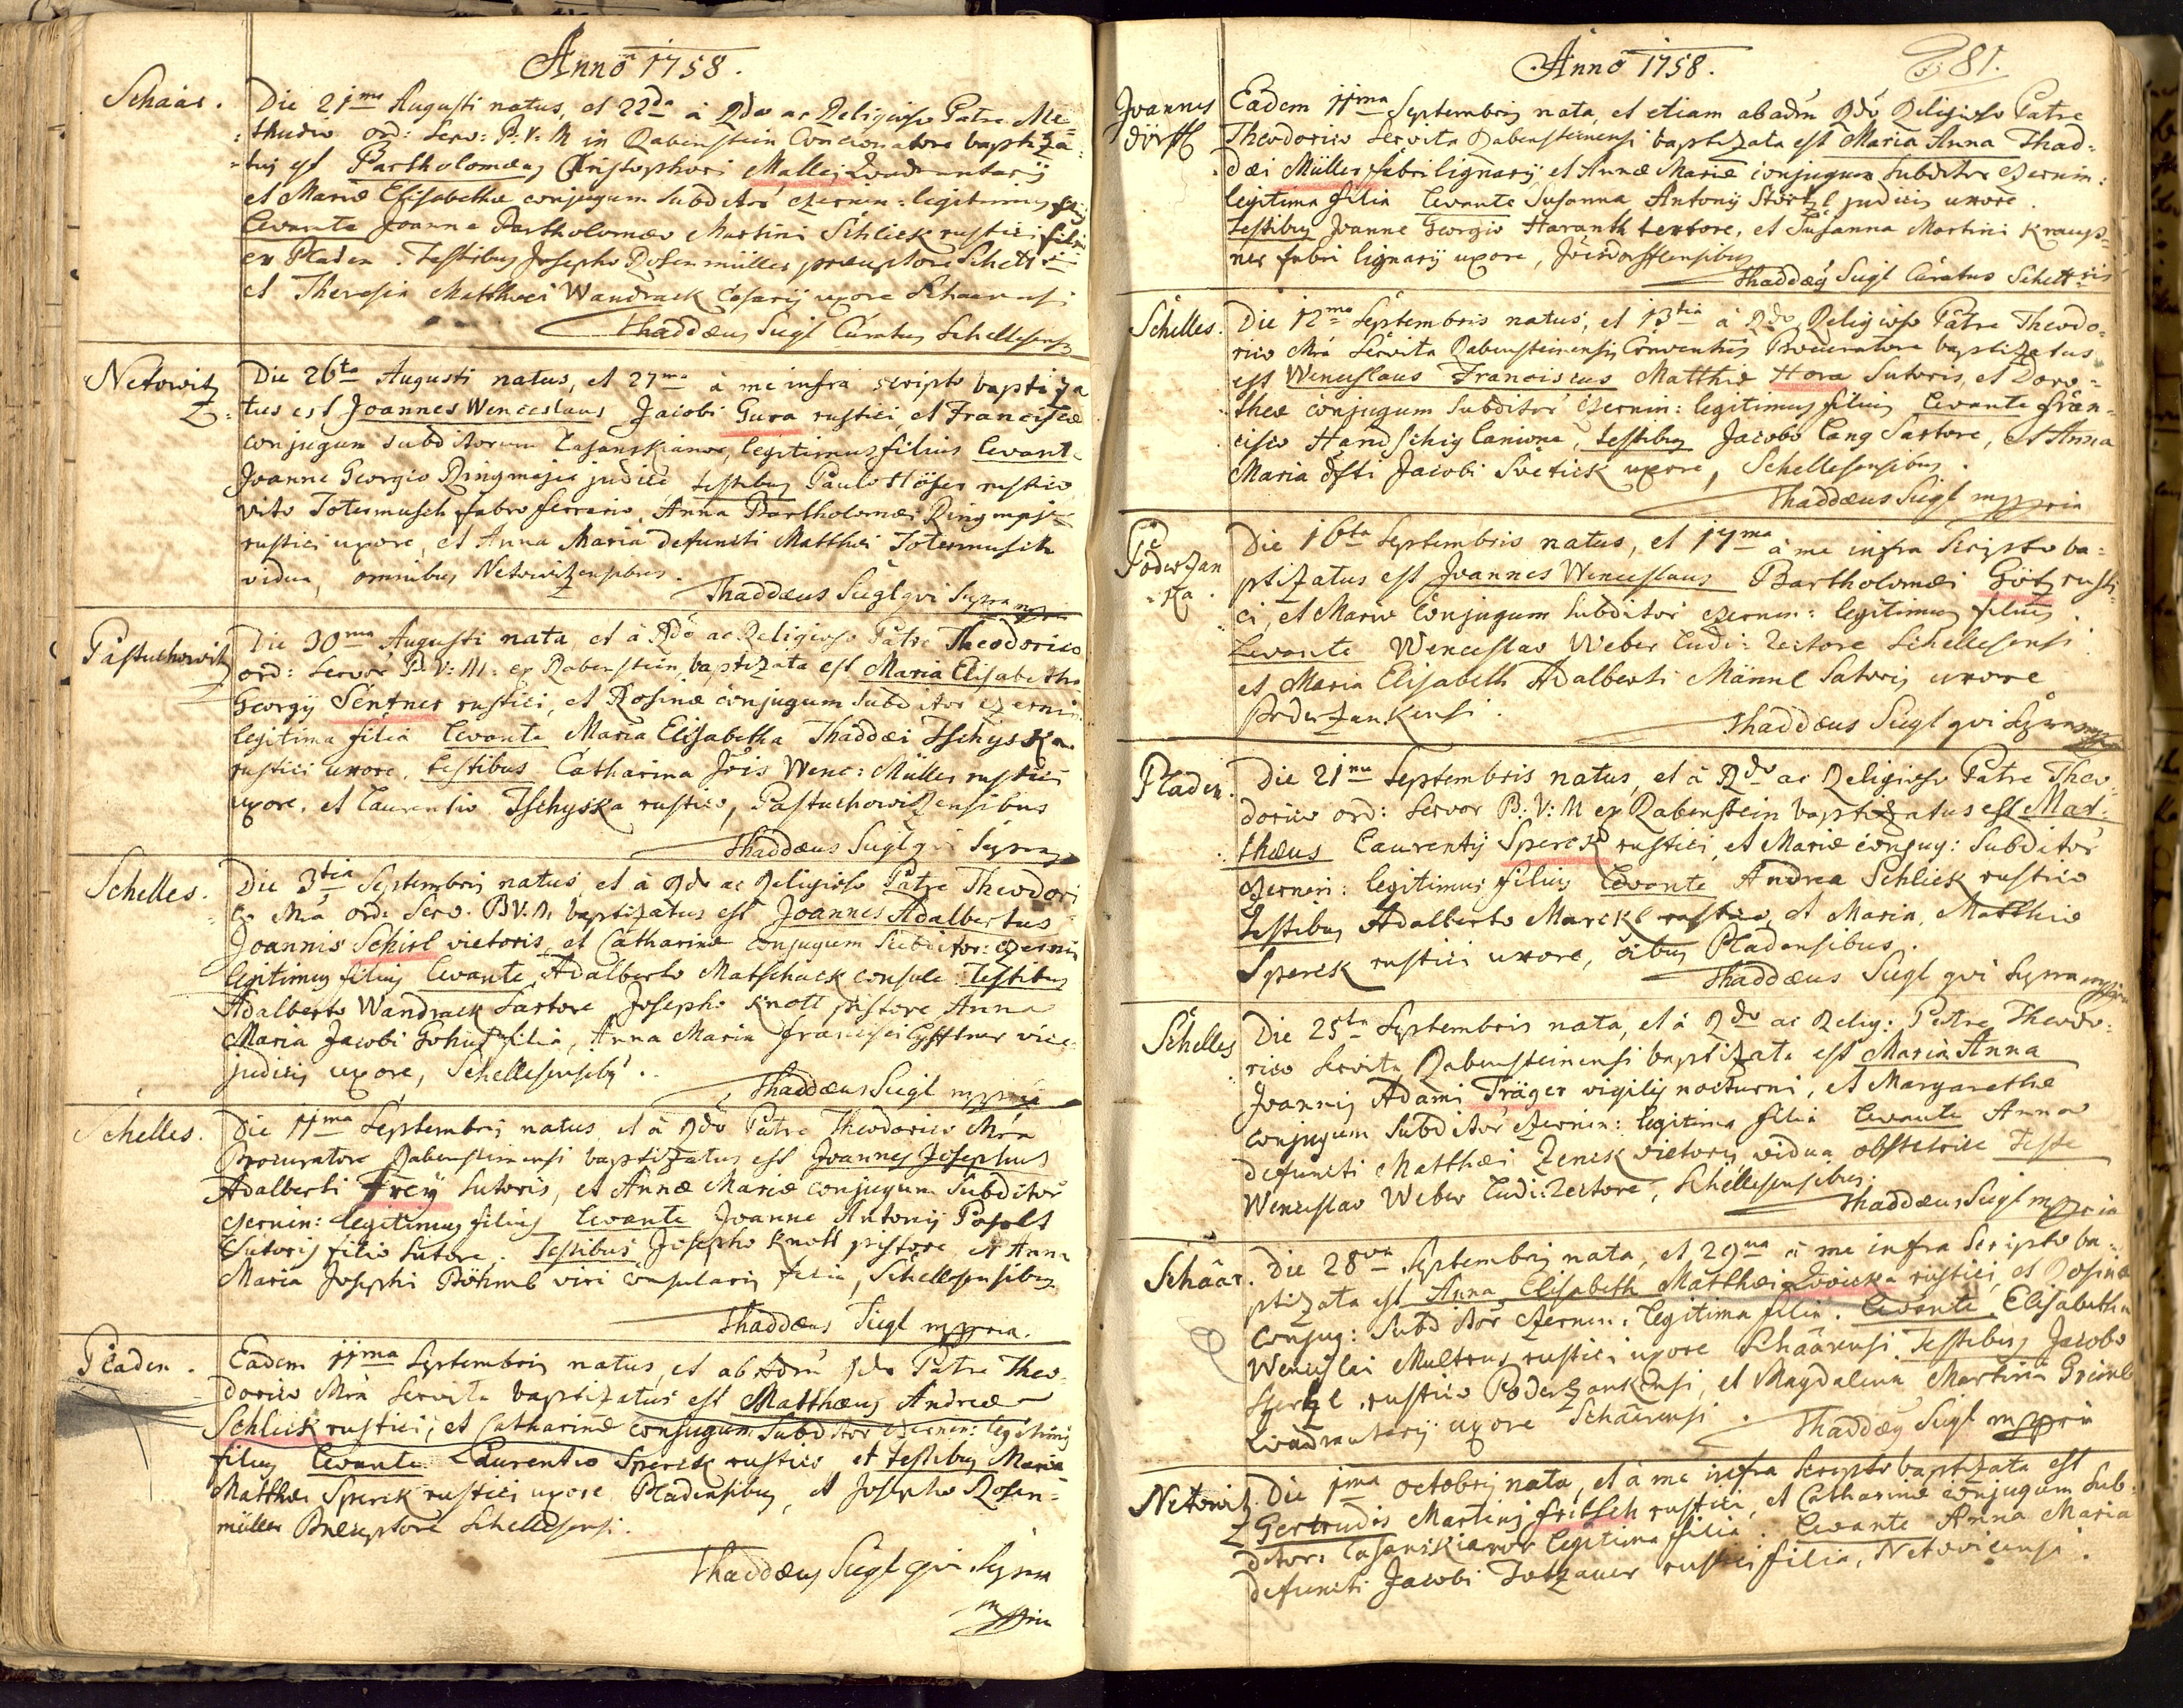 Anno 1758.
Schaar. Die 21ma Augusti natus, et 22da à Rdo ac Religioso Patre Me=
=thudio ord: Serv: B. V. M in Rabenstein Concionatore baptiza=
=tus est Bartholomæus Christophori Mallej Quadrantarij
et Mariæ Elisabethæ conjugum subditor Czernin: legitimus filius
Levante Joanne Bartholomæo Martini Schlick rustici filio
ex Pladen. Testibus Josepho Rosenmüller præceptore Schell:
et Theresia Matthæi Wandrack Casarij uxore Schaarensi
Thaddæus Siegl Curatus Schellesensis
Netowitz Die 26ta Augusti natus, et 27ma à me infra scripto baptiza
=tus est Joannes Wenceslaus Jacobi Gura rustici, et Franciscæ
conjugum subditorum Casanskianor, legitimus filius Levante
Joanne Georgio Ringmajer judice, testibus Paulo Höfer rustico
Vito Totermusch fabro ferrario, Anna Bartholomæi Ringmajer
rustici uxore, et Anna Maria defuncti Matthæi Totermusch
vidua, omnibus Netowitzensibus.
Thaddæus Siegl qui Supra mppria
Pastuchowitz Die 30ma Augusti nata, et à Rdo ac Religioso Patre Theodorico
ord: Servor B: V: M: ex Rabenstein baptizata est Maria Elisabetha
Georgij Sentner rustici, et Rosinæ conjugum subditor Czernin
legitima filia Levante Maria Elisabetha Thaddæi Tschyska
rustici uxore, testibus Catharina Jois Wenc: Müller rustici
uxore, et Laurentio Tschyska rustico, Pastuchowitzensibus
Thaddæus Siegl qui Supra
Schelles. Die 3tia Septembris natus, et à Rdo ac Religioso Patre Theodori
co Mra ord: Serv. B.V.M. baptizatus est Joannes Adalbertus
Joannis Schirl vietoris, et Catharinæ conjugum Subditor: Czernin
legitimus filius Levante Adalberto Matschack consule Testibus
Adalberto Wandrack Sartore Josepho Knott pistore Anna
Maria Jacobi filia, Anna Maria Francisci vice
judicis uxore, Schellesensibus.
Thaddæus Siegl mppria
Schelles. Die 11ma Septembris natus, et à Rdo Patre Theodorico Mra
Procuratore Rabensteinensi baptizatus est Joannes Josephus
Adalberti Frey Sutoris, et Annæ Mariæ conjugum Subditor
Czernin: legitimus filius Levante Joanne Antonij Poselt
Sutoris filio Sutore. Testibus Josepho Knott pistore et Anna
Maria Josephi Böhmb viri consularis filia, Schellesensibus
Thaddæus Siegl mppria.
Pladen. Eadem 11ma Septembris natus, et ab eodem Rdo Patre Theo=
dorico Mra Servita baptizatus est Matthæus Andreæ
Schlick rustici, et Catharinæ conjugum Subditor Czernin: legitimus
filius Levante Laurentio Sperck rustico et testibus Maria
Matthæi Sperck rustici uxore Pladensibus, et Josepho Rosen=
müller Præceptore Schellesensi.
Thaddæus Siegl qui Supra
mppria
Anno 1758. 81.
Joannes
dorff Eadem 11ma Septembris nata, et etiam ab eodem Rdo Religioso Patre
Theodorico Servita Rabensteinensi baptizata est Maria Anna Thad=
dæi Müller fabri lignarij et Annæ Mariæ conjugum Subditor Czernin:
legitima filia Levante Susanna Antonij Stortzl judicis uxore.
testibus Joanne Georgio Haranth textore, et Susanna Martini Kraus=
ner fabri lignarij uxore, Joesdorffensibus
Thaddæus Siegl Curatus Schellensis
Schelles. Die 12ma Septembris natus, et 13tia à Rdo Religioso Patre Theodo=
rico Mra Servita Rabensteinensis Conventus Procuratore baptizatus
est Wenceslaus Franciscus Matthiæ Hora Sutoris, et Doro=
theæ conjugum Subditor Czernin: legitimus filius Levante Fran=
cisco Handschig Lanione, testibus Jacobo Lang Sartore, et Anna
Maria dfti Jacobi Svetick uxore, Schellesensibus.
Thaddæus Siegl mppria
Poderzan
ka. Die 16ta Septembris natus, et 17ma à me infra Scripto ba=
ptizatus est Joannes Wenceslaus Bartholomæi Götz rusti=
ci, et Mariæ conjugum Subditor Czernin: legitimus filius.
Levante Wenceslao Weber Ludi: Rectore Schellesensi
et Maria Elisabeth Adalberti Männl Satoris uxore
Poderzankensi.
Thaddæus Siegl qui Supra mppria
Pladen. Die 21ma Septembris natus, et à Rdo ac Religioso Patre Theo=
dorico ord: Servor B: V: M ex Rabenstein baptizatus est Mat=
thæus Laurentij Sperck rustici, et Mariæ conjug: Subditor
Czernin: legitimus filius Levante Andrea Schlick rustico
testibus Adalberto Marckl rustico, et Maria Matthiæ
Sperck rustici uxore, oibus Pladensibus.
Thaddæus Siegl qui Supra mppria
Schelles Die 25ta Septembris nata, et à Rdo ac Relig: Patre Theodo=
rico Servita Rabensteinensi baptizata est Maria Anna
Joannis Adami Träger vigilis nocturni, et Margarethæ
conjugum Subditor Czernin: legitima filia Levante Anna
defuncti Matthæi Zenck vietoris vidua obstetrice Teste
Wenceslao Weber Ludi: Rectore, Schellesensibus.
Thaddæus Siegl mppria
Schaar. Die 28va Septembris nata, et 29na à me infra Scripto ba=
ptizata est Anna Elisabeth Matthæi Zwicka rustici, et Rosinæ
Conjug: Subditor Czernin: legitima filia. Levante Elisabetha
Wenceslai Multrus rustici uxore Schaarensi Testibus Jacobo
Stertzl rustico Poderzankensi, et Magdalena Martini Greinl
Quadrantarij uxore Schaarensi. Thaddæus Siegl mppria
Netowitz Die 1ma octobris nata, et à me infra Scripto baptizata est
Gertrudis Martini Fritsch rustici, et Catharinæ conjugum Sub=
ditor: Casanskianor legitima filia. Levante Anna Maria
defuncti Jacobi Totzauer rustici filia, Netovicensi.